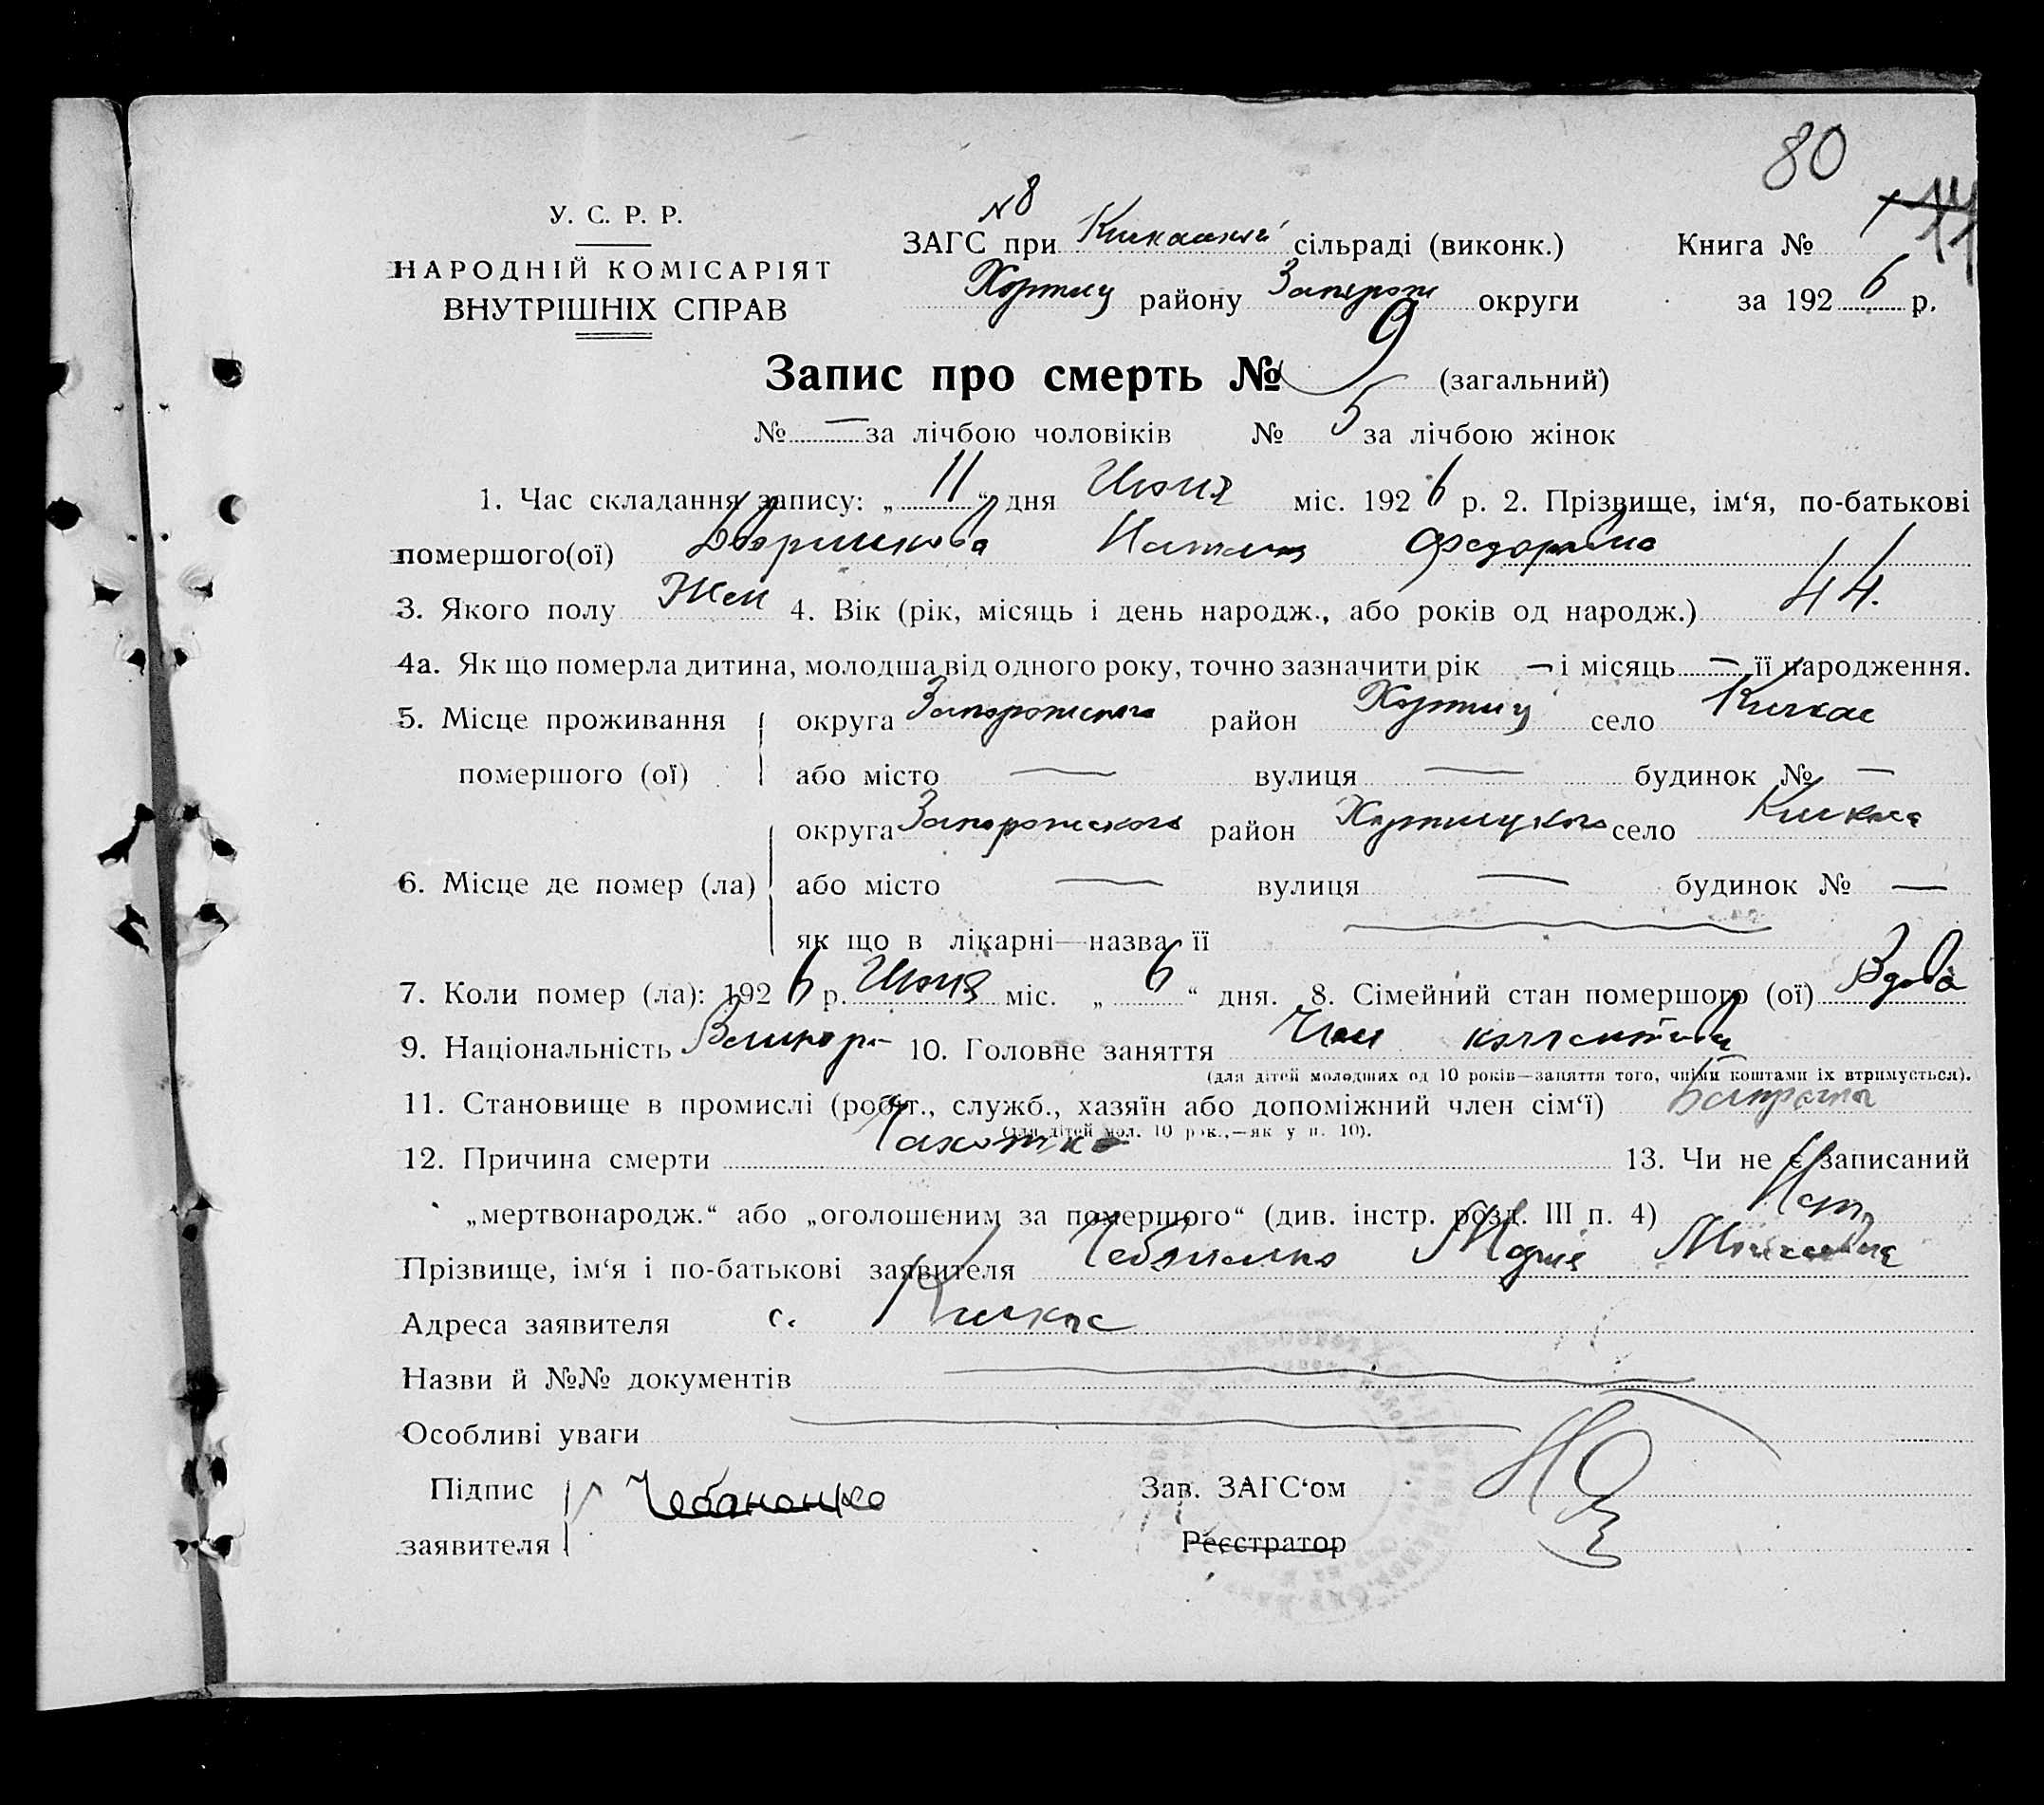 80
У. С. Р. Р.
НАРОДНІЙ КОМІСАРІЯТ
ВНУТРІШНІХ СПРАВ
№ 8
ЗАГС при Кичкаской сільраді (виконк.)
Книга №
Хортиц району Запорож округи
за 1926 р.
Запис про смерть № 9 (загальний)
№ — за лічбою чоловіків № 5 за лічбою жінок
1. Час складання запису: „ 11 “ дня Июня міс. 1926 р. 2. Прізвище, ім‘я, по-батькові
помершого(ої) Федоровна
3. Якого полу Жен 4. Вік (рік, місяць і день народж., або років од народж.) 44.
4а. Як що померла дитина, молодша від одного року, точно зазначити рік — і місяць — її народження.
5. Місце проживання округа Запорожского район Хортиц село Кичкас
помершого (ої) або місто — вулиця — будинок № —
округа Запорожского район Хортицкого село Кичкас
6. Місце де помер (ла) або місто — вулиця — будинок № —
як що в лікарні—назва її
7. Коли помер (ла): 1926 р. Июня міс. „ 6 “ дня. 8. Сімейний стан помершого (ої) Вдова
9. Національність Великор 10. Головне заняття Член
(для дітей молодших од 10 років—заняття того, чиїми коштами їх втримується).
11. Становище в промислі (робіт., служб., хазяїн або допоміжний член сім‘ї)
(для дітей мол. 10 рок.,—як у п. 10).
12. Причина смерти Чахотка 13. Чи не є записаний
„мертвонародж.“ або „оголошеним за померщого“ (див. інстр. розд. III п. 4) Нет
Прізвище, ім‘я і по-батькові заявителя Чебаненко Мария
Адреса заявителя с. Кичкас
Назви й №№ документів
Особливі уваги
Підпис Чебаненко Зав. ЗАГС‘ом
заявителя Реєстратор